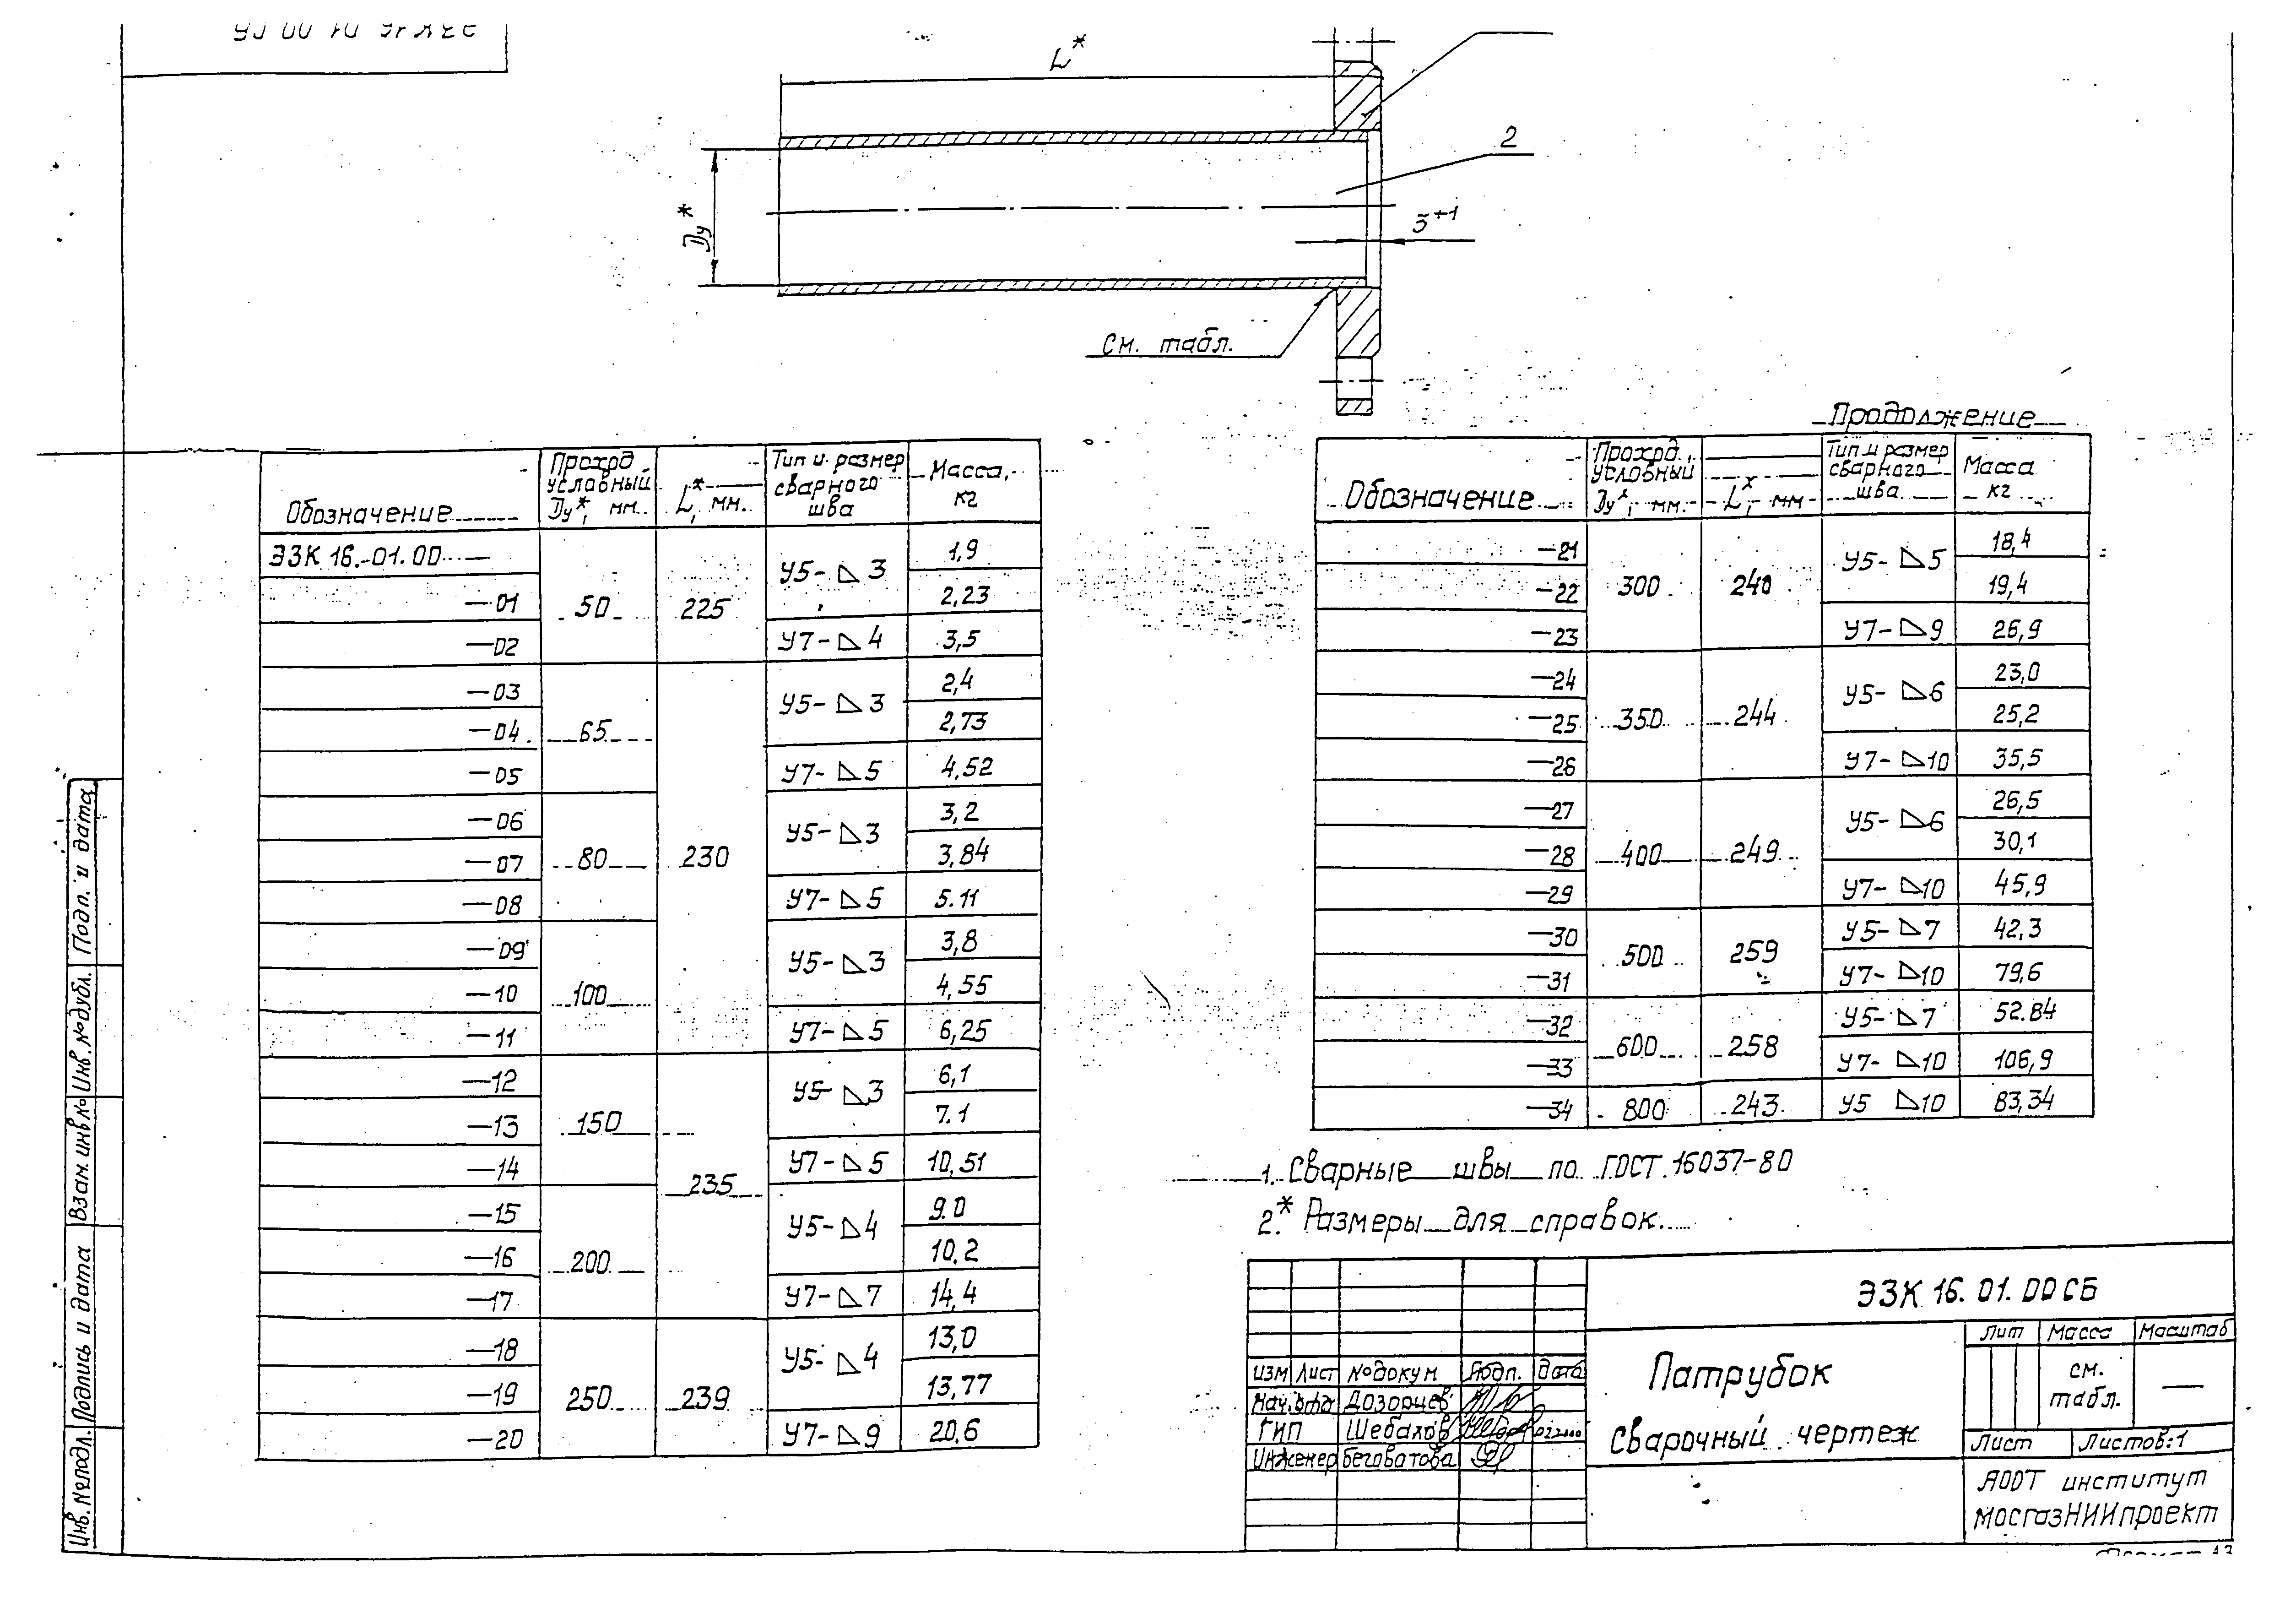 L*
2
Dу*
3+1
см. табл.
Обозначение
Проход условный Dу*, мм.
L*, мм.
Тип и размер сварного шва
Масса, кг
ЭЗК 16.-01.00
50
225
У5-◺3
1,9
—01
2,23
—02
У7-◺4
3,5
—03
65
230
У5-◺3
2,4
—04
2,73
—05
У7-◺5
4,52
—06
80
У5-◺3
3,2
—07
3,84
—08
У7-◺5
5.11
—09
100
У5-◺3
3,8
—10
4,55
—11
У7-◺5
6,25
—12
150
235
У5-◺3
6,1
—13
7.1
—14
У7-◺5
10,51
—15
200
У5-◺4
9.0
—16
10,2
—17
У7-◺7
14,4
—18
250
239
У5-◺4
13,0
—19
13,77
—20
У7-◺9
20,6
Продолжение
Обозначение
Проход условный Dу*, мм.
L*, мм
Тип и размер сварного шва
Масса кг
—21
300
240
У5-◺5
18,4
—22
19,4
—23
У7-◺9
26,9
—24
350
244
У5-◺6
23,0
—25
25,2
—26
У7-◺10
35,5
—27
400
249
У5-◺6
26,5
—28
30,1
—29
У7-◺10
45,9
—30
500
259
У5-◺7
42,3
—31
У7-◺10
79,6
—32
600
258
У5-◺7
52.84
—33
У7-◺10
106,9
—34
800
243
У5 ◺10
83,34
1. Сварные швы по ГОСТ 16037-80
2.* Размеры для справок.
ЭЗК 16.01.00СБ
Патрубок
Сварочный чертеж
Лит
Масса
Масштаб
см. табл.
—
Лист
Листов:1
АООТ институт
МосгазНИИпроект
Изм
Лист
№докум
Подп.
Дата
Нач.отд
Дозорцев
ГИП
Шебалов
Инженер
Беговатова
Подп. и дата
Инв. №дубл.
Взам. инв №
Подпись и дата
Инв. №подл.